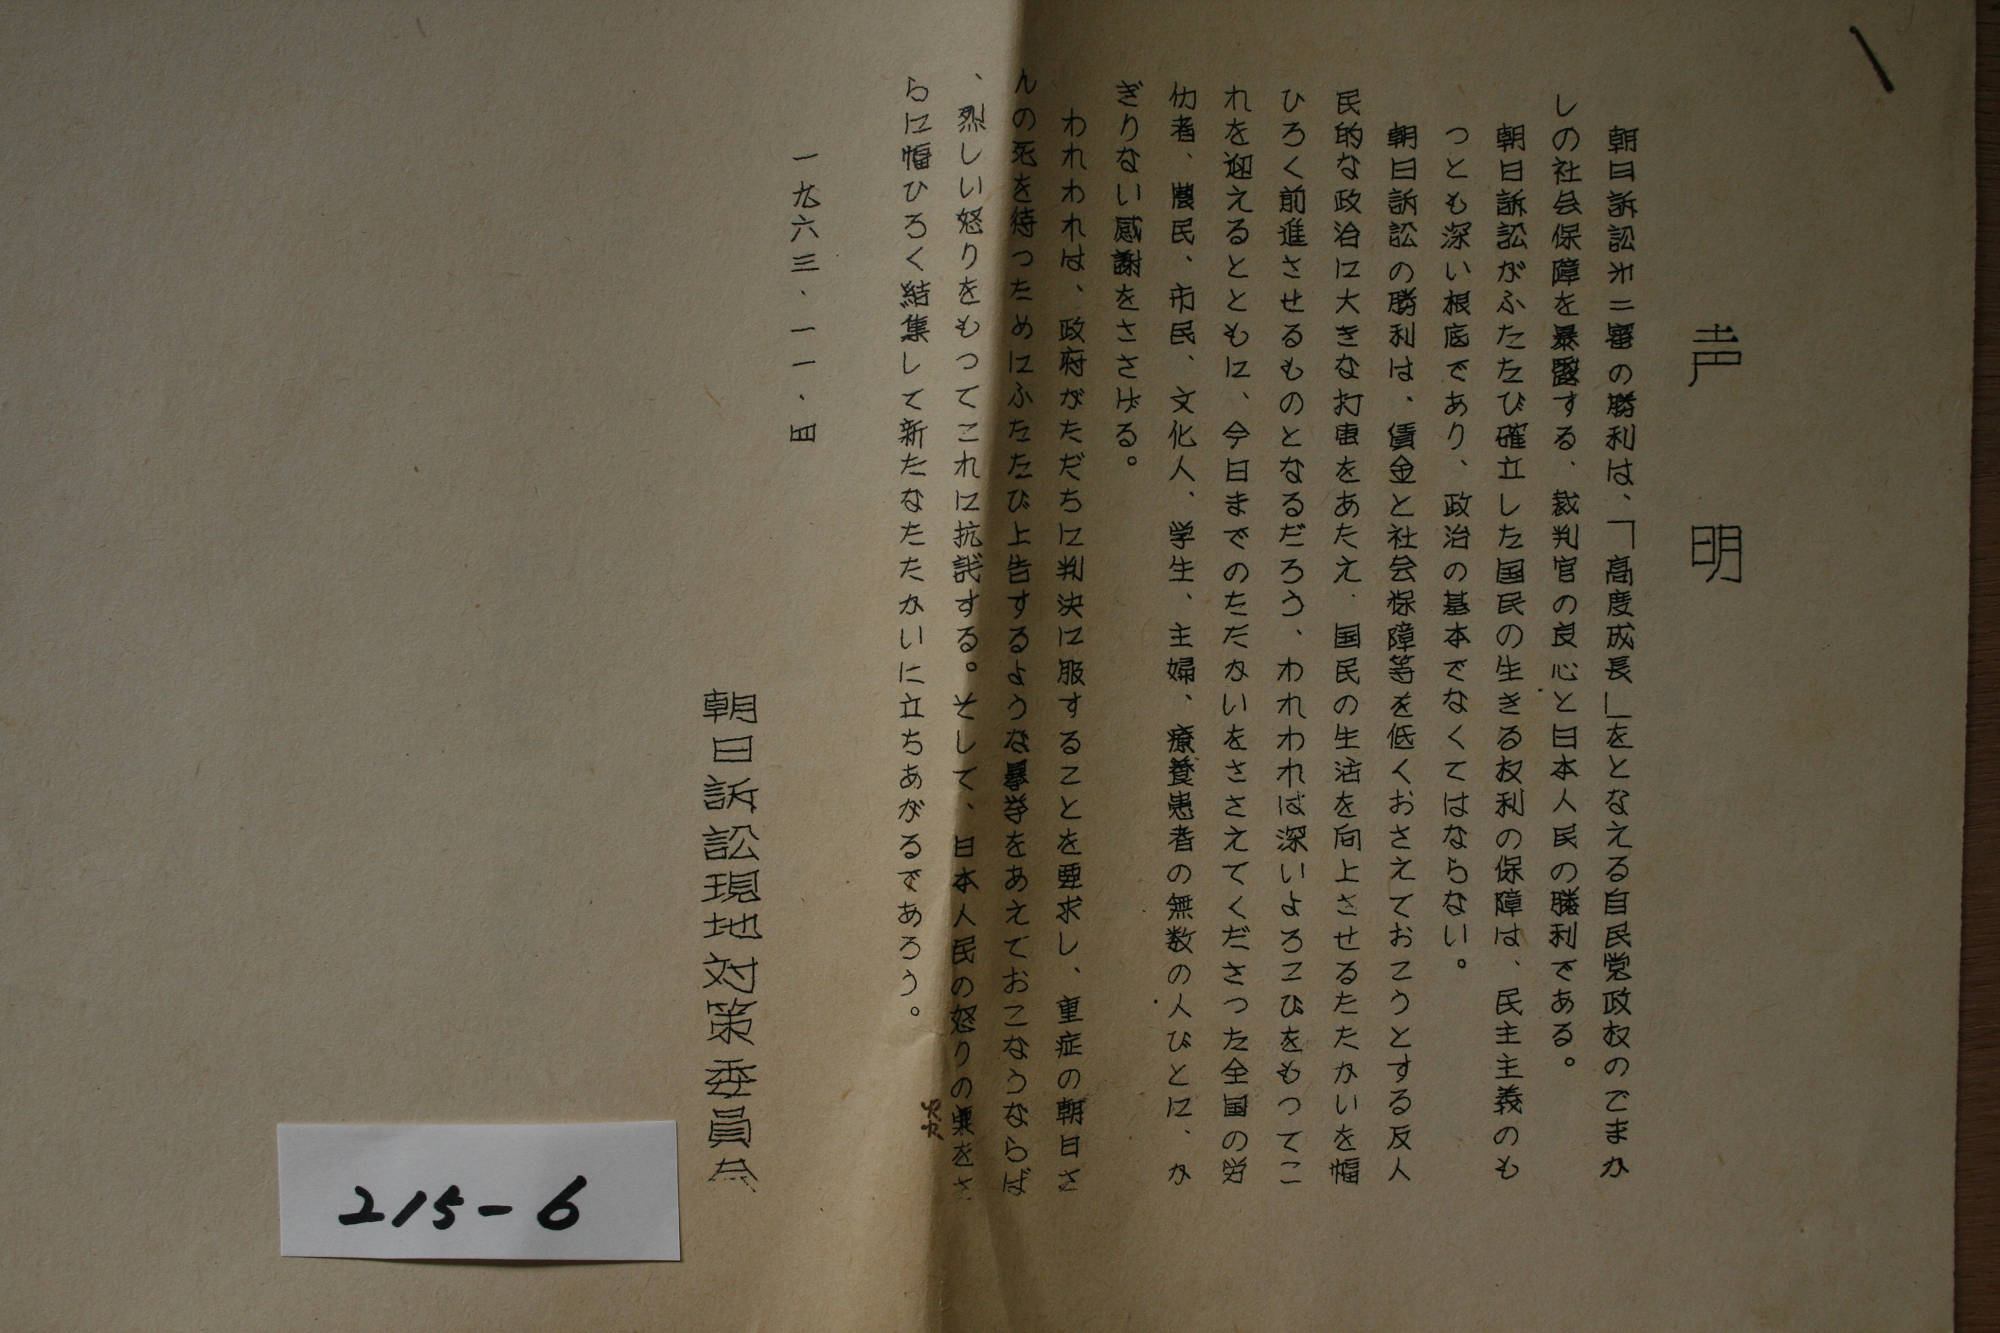 声明
朝日訴訟オ二審の勝利は、「高度成長」をとなえる自民党政权のごまか
しの社会保障を暴露する、裁判官の良心と日本人民の勝利である。
朝日訴訟がふたたび確立した国民の生きる权利の保障は、民主主義のも
つとも深い根底であり、政治の基本でなくてはならない。
朝日訴訟の勝利は、賃金と社会保障等を低くおさえておこうとする反人
民的な政治に大きな打撃をあたえ、国民の生活を向上させるたたかいを幅
ひろく前進させるものとなるだろう、われわれは深いよろこびをもつてこ
れを迎えるとともに、今日までのたたかいをささえてくださつた全国の労
仂者、農民、市民、文化人、学生、主婦、療養患者の無数の人びとに、か
ぎりない感謝をささげる。
われわれは、政府がただちに判決に服することを要求し、重症の朝日さ
んの死を待つためにふたたび上告するような暴挙をあえておこなうならば
、烈しい怒りをもつてこれに抗議する。そして、日本人民の怒りの炎をさ
らに幅ひろく結集して新たなたたかいに立ちあがるであろう。
一九六三・一一・四
朝日訴訟現地対策委員会
215-6